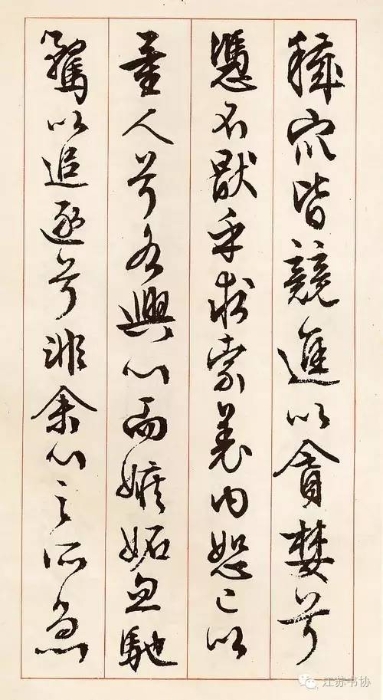 穢眾皆競進以貪婪兮
憑不猒乎求索羌內恕己以
量人兮各興心而嫉妬忽馳
騖以追逐兮非余心之所急
江苏书协